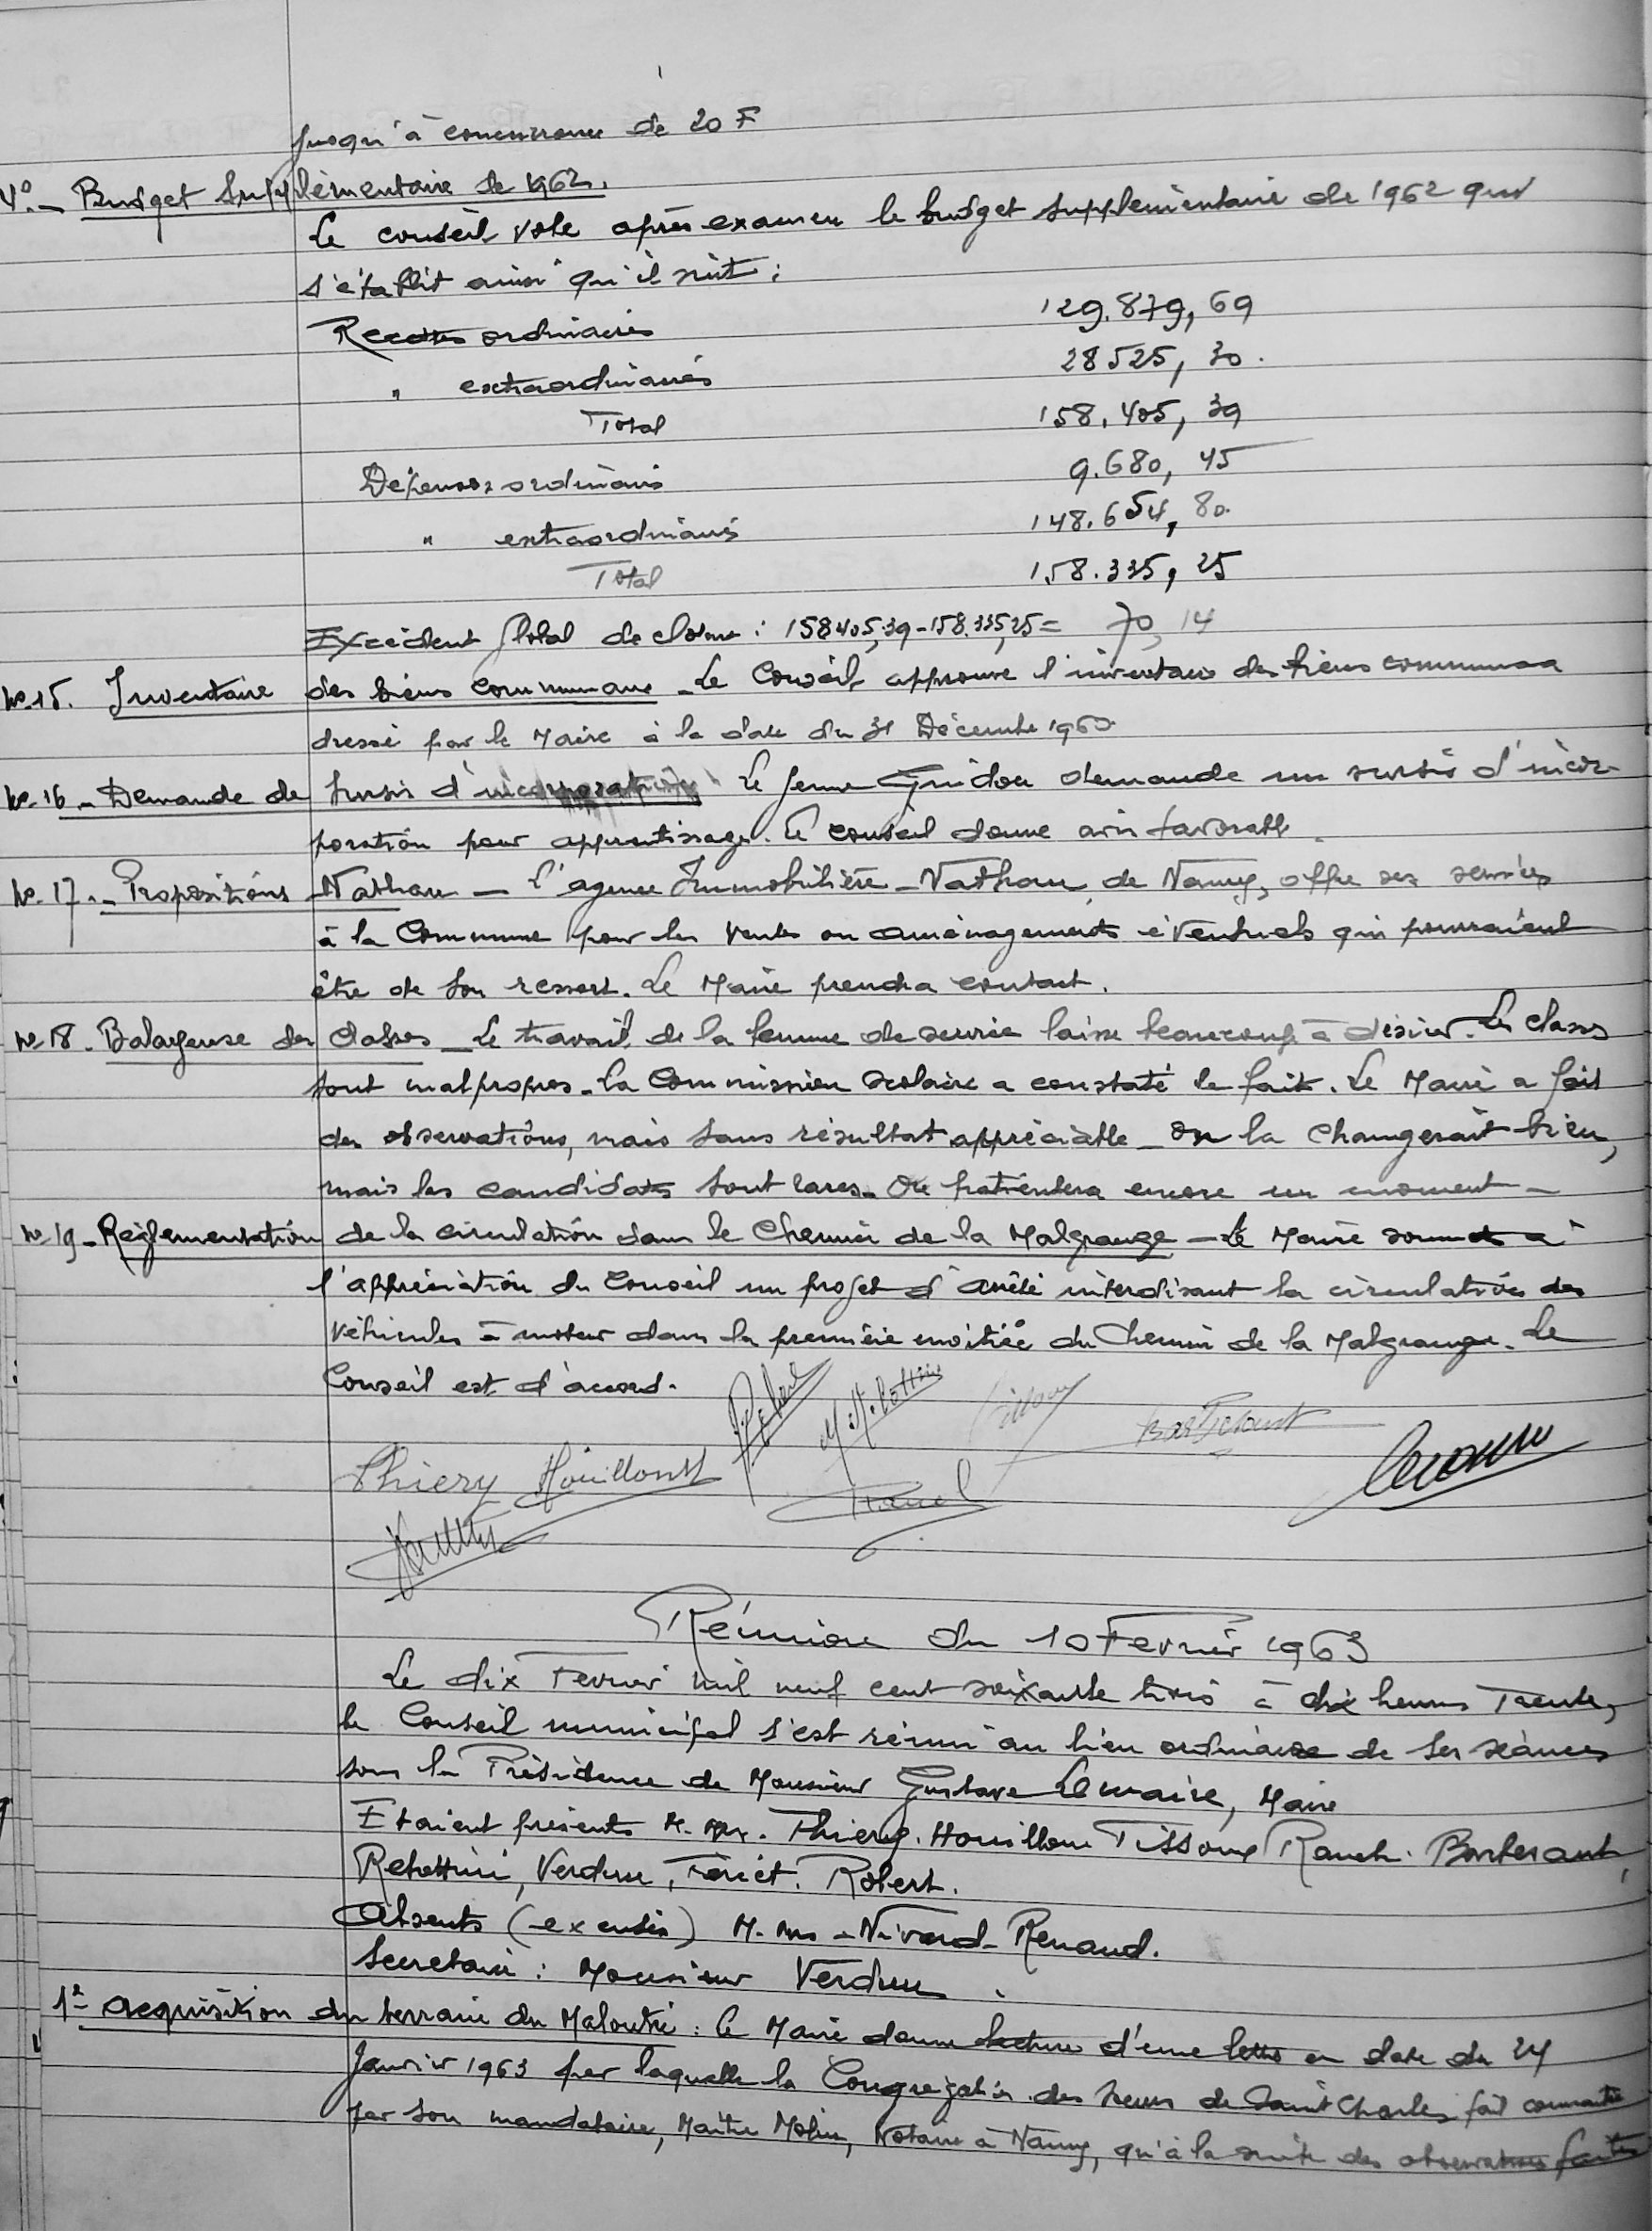 jusqu'à concurrence de 20 F
4°. - Budget supplémentaire de 1962.
Le conseil vote après examen le budget supplémentaire de 1962 qui
s'établit ainsi qu'il suit :
Recettes ordinaires 129.879,69
" extraordinaires 28525,30.
Total 158.405,39
Dépenses ordinaires 9.680,45
" extraordinaires 148.654,80.
Total 158.335,25
Excédent global de cloture : 158405,39-158.335,25= 70,14
No 15. Inventaire des biens communaux - Le Conseil approuve l'inventaire des biens communaux
dressé par le Maire à la date du 31 Décembre
No 16 - Demande de sursis d'incorporation Le jeune Guidon demande un sursis d'incor-
poration pour apprentissage. Le conseil donne avis favorable.
No 17. - Propositions Nathan - L'agence Immobilière - Nathan, de Nancy, offre ses services
à la Commune pour les ventes ou aménagements éventuels qui pourraient
être de son ressort. Le Maire prendra contact.
No 18. Balayeuse des classes - Le travail de la femme de service laisse beaucoup à désirer. Les classes
sont malpropres. La Commission scolaire a constaté le fait. Le Maire a fait
des observations, mais sans résultat appréciable - On la changerait bien,
mais les candidats sont rares. On patientera encore un moment -
No 19 - Réglementation de la circulation dans le Chemin de la Malgrange - Le Maire soumet à
l'appréciation du Conseil un projet d'arrêté interdisant la circulation des
véhicules à moteur dans la première moitiée du Chemin de la Malgrange. Le
Conseil est d'accord.
Thiery Houillon
Réunion du 10 Fevrier 1963
Le dix Fevrier mil neuf cent soixante trois à dix heures Trente,
le Conseil municipal s'est réuni au lieu ordinaire de ses séances
sous la Présidence de Monsieur Gustave Lemaire, Maire
Etaient présents M. Mrs. Thiery. Houillon Tissoux Rauch. Barbesant,
Rebottini, Verdun, Feriet. Robert.
Absents (excusés) M. Mrs - Nivard - Renaud.
Secretaire : Monsieur Verdun.
1° - Acquisition du terrain du : le Maire donne lecture d'une lettre en date du 24
Janvier 1963 par laquelle la Congrégation des Sœurs de Saint Charles fait connaitre
par son mandataire, Maître Molin, Notaire à Nancy, qu'à la suite des observations faites